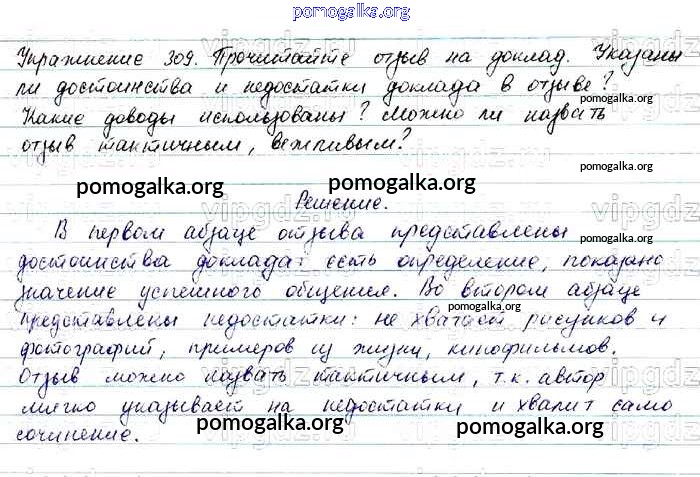 pomogalka.org
Упражнение 309. Прочитайте отзыв на доклад. Указаны
ли достоинства и недостатки доклада в отзыве?
pomogalka.org
Какие доводы использованы? Можно ли назвать
отзыв тактичным, вежливым?
pomogalka.org
pomogalka.org
pomogalka.org
Решение.
В первом абзаце отзыва представлены
pomogalka.org
достоинства доклада: есть определение, показано
значение успешного общения. Во втором абзаце
pomogalka.org
представлены недостатки: не хватает рисунков и
фотографий, примеров из жизни, кинофильмов.
Отзыв можно назвать тактичным, т.к. автор
pomogalka.org
мягко указывает на недостатки и хвалит само
pomogalka.org
pomogalka.org
сочинение.